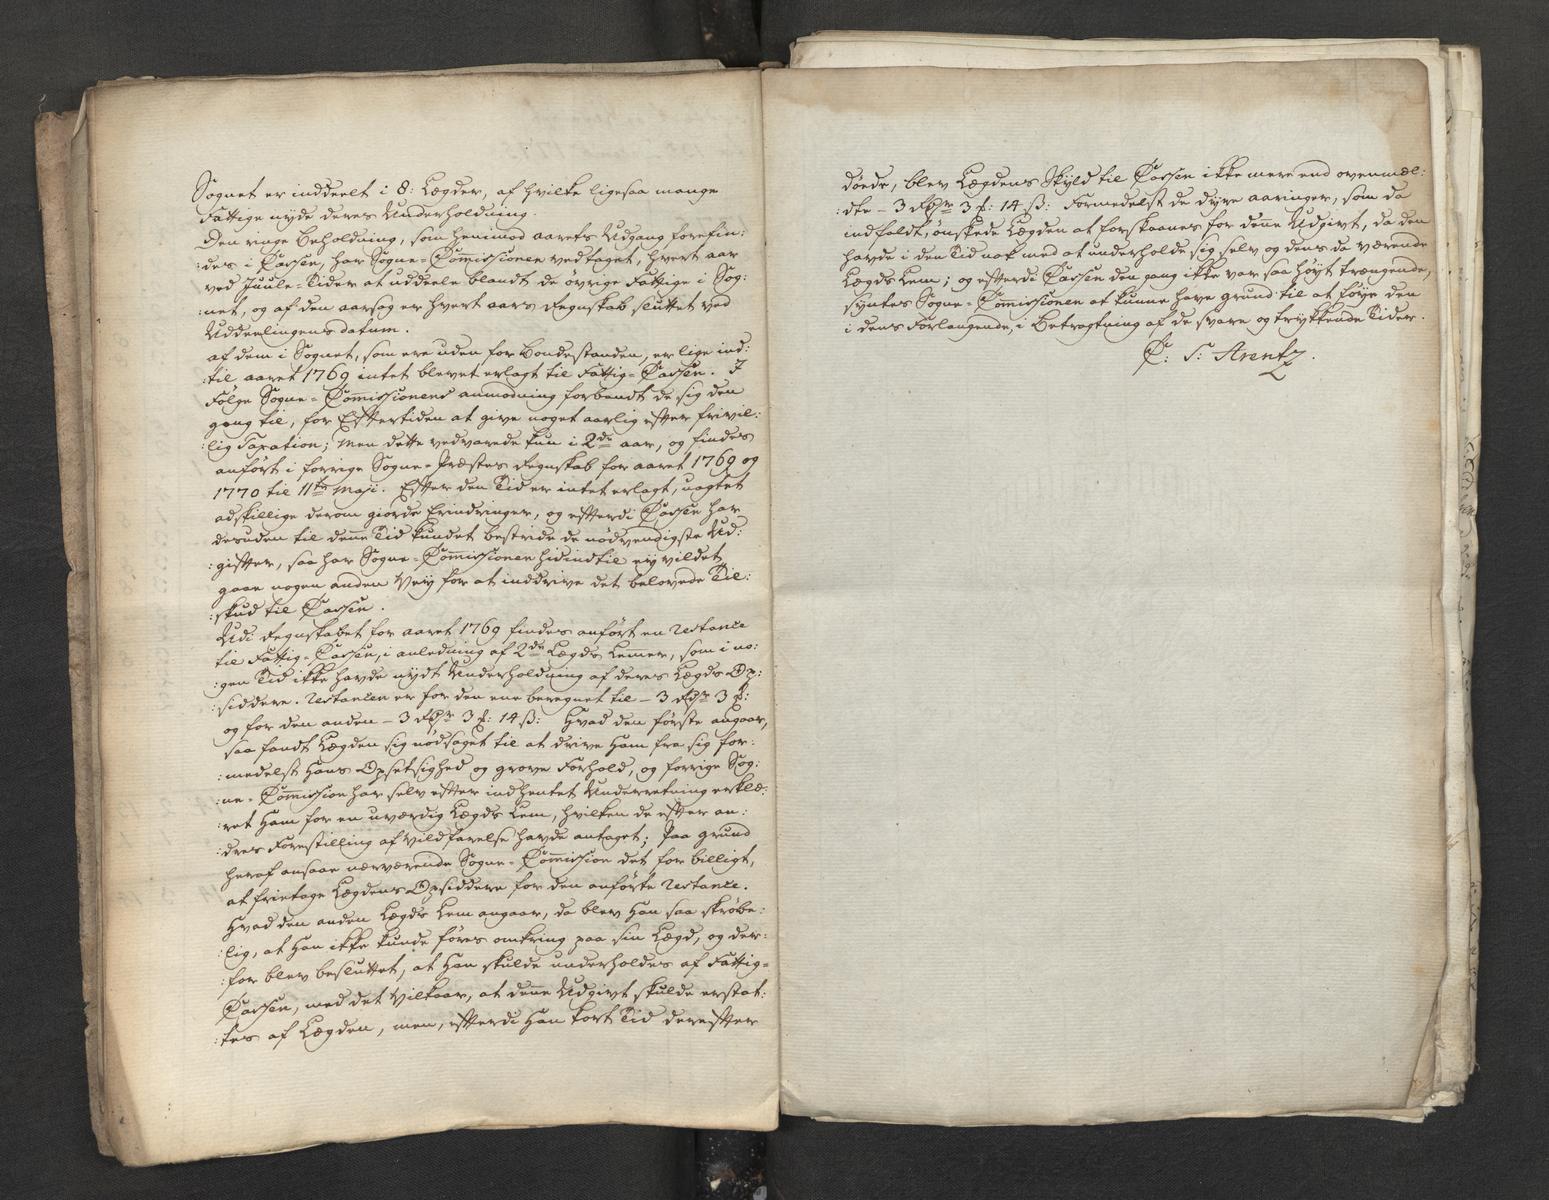 Sognet er inddeelt i 8: Lægder, af hvilke ligesaa mange
Fattige nyde deres Underholdning.
Den ringe Beholdning, som henimod aarets Udgang forefin:
:des i Cassen, har Sogne-Com̅issionen vedtaget, hvert aar
ved Juule-Tider at uddeele blandt de øvrige Fattige i Sog:
:net, og af den aarsag er hvert aars Regnskab sluttet ved
Uddeelingens datum.
af dem i Sognet, som ere uden for Bondestanden, er lige ind:
:til aaret 1769 intet blevet erlagt til Fattig-Cassen. I
Følge Sogne-Com̅issionens anmodning forbandt de sig den
gang til, for Efftertiden at give noget aarlig effter frivil:
:lig Taxation; men dette vedvarede kun i 2de aar, og findes
anført i forrige Sogne-Præstes Regnskab for aaret 1769 og
1770 til 11te Maji. Effter den Tid er intet erlagt, uagtet
adskillige derom giorde Erindringer, og effterdi Cassen har
desuden til den̅e Tid kundet bestride de nødvendigste Ud:
:giffter, saa har Sogne-Com̅issionen hidindtil ey vildet
gaae nogen anden Vey for at inddrive det belovede Til:
:skud til Cassen.
Udi Regnskabet for aaret 1769 findes anført en Restance
til Fattig-Cassen, i anledning af 2de Lægds Lemer, som i no:
:gen Tid ikke havde nydt Underholdning af deres Lægds Op:
:siddere. Restancen er for den ene beregnet til – 3 Rdr 3 ƒ:
og for den anden – 3 Rdr 3 ƒ: 14 ß: Hvad den første angaar,
saa fandt Lægden sig nødsaget til at drive ham fra sig for:
:medelst hans Opsetsighed og grove Forhold, og forrige Sog:
:ne-Com̅ission har selv effter indhentet Underretning erklæ:
:ret ham for en uværdig Lægds Lem, hvilken de effter an:
:dres Forestilling af Vildfarelse havde antaget; Paa grund
heraf ansaae nærværende Sogne-Com̅ission det for billigt,
at frietage Lægdens Opsiddere for den anførte Restance.
Hvad den anden Lægds Lem angaar, da blev han saa skrøbe:
:lig, at han ikke kunde føres omkring paa sin Lægd, og der:
:for blev besluttet, at han skulde underholdes af Fattig-
Cassen, med det Vilkaar, at den̅e Udgivt skulde erstat:
:tes af Lægden, men, effterdi han kort Tid dereffter
døede, blev Lægdens Skyld til Cassen ikke mere end ovenmel:
:dte – 3 Rdr 3 ƒ: 14 ß: Formedelst de dyre aaringer, som da
indfaldt, ønskede Lægden at forskaanes for den̅e Udgivt, da den
havde i den Tid nok med at underholde sig selv og dens da værende
Lægds Lem; og effterdi Cassen den gang ikke var saa høyt trængende,
syntes Sogne-Com̅issionen at kunne have grund til at føye den
i dens Forlangende, i Betragtning af de svare og trykkende Tider.
C: S: Arentz.